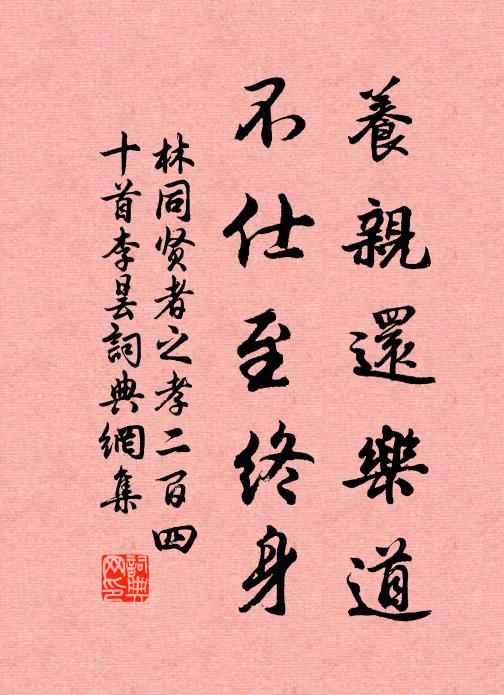 養親還樂道
不仕至終身
林同贤者之孝二百四
十首李昙詞典網集
詞典网印